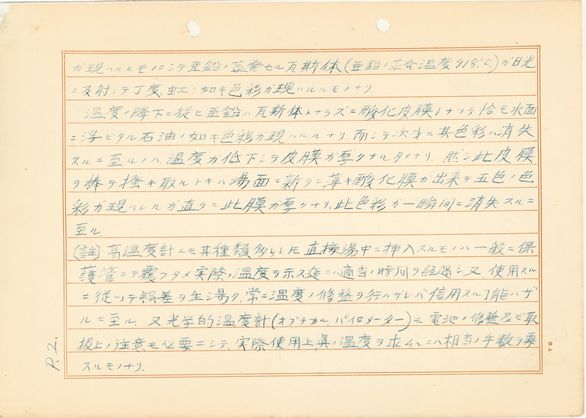 ガ現ハルルモノニシテ亜鉛ノ蒸発セル瓦斯体(亜鉛ノ蒸発温度918°C)ガ日光
ニ反射シテ丁度虹ノ如キ色彩ガ現ハルルモノナリ
温度ノ降下ニ従ヒ亜鉛ハ瓦斯体トナラズニ酸化皮膜トナリテ恰モ水面
ニ浮ビタル石油ノ如キ色彩ガ現ハルルナリ 而シテ次第ニ其色彩ハ消失
スルニ至ルノハ、温度ガ低下シテ皮膜ガ厚クナルタメナリ 然シ此皮膜
ヲ棒デ掻キ取ルトキハ湯面ニ新タニ薄キ酸化膜ガ出来テ五色ノ色
彩ガ現ハルルガ直ケニ此膜ガ厚クナリ、此色彩ガ一瞬間ニ消失スルニ
至ル
(註) 高温度計ニモ其種類多々シ 直接湯中ニ挿入スルモノハ一般ニ保
護管ニテ覆フタメ実際ノ温度ヲ示ス迄ニ適当ノ時間ヲ経過シ又使用スル
ニ従ツテ誤差ヲ生ズ為 常ニ温度ノ修整ヲ行ハザレバ信用スル能ハザ
ルニ至ル 又光学的温度計(オプチカルパイロメーター)ニ電池ノ修整及ビ取
扱上ノ注意モ必要ニシテ、実際使用上真ノ温度ヲ求ムルニハ相当ノ手数ヲ要
スルモノナリ、
P. 2.